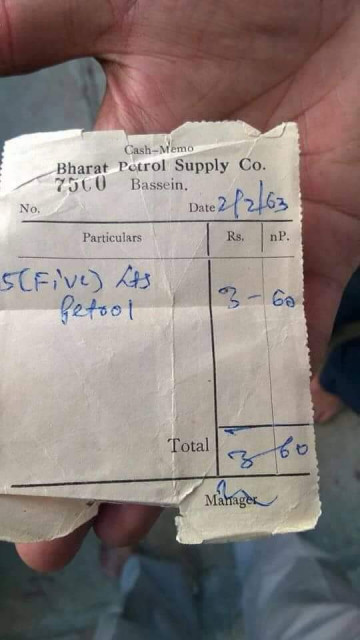 Cash-Memo
Bharat Petrol Supply Co.
7500 Bassein.
No. Date 2/2/63
Particulars Rs. nP.
5 (Five) Lts 3 - 60
Petrol
Total 3 60
Manager